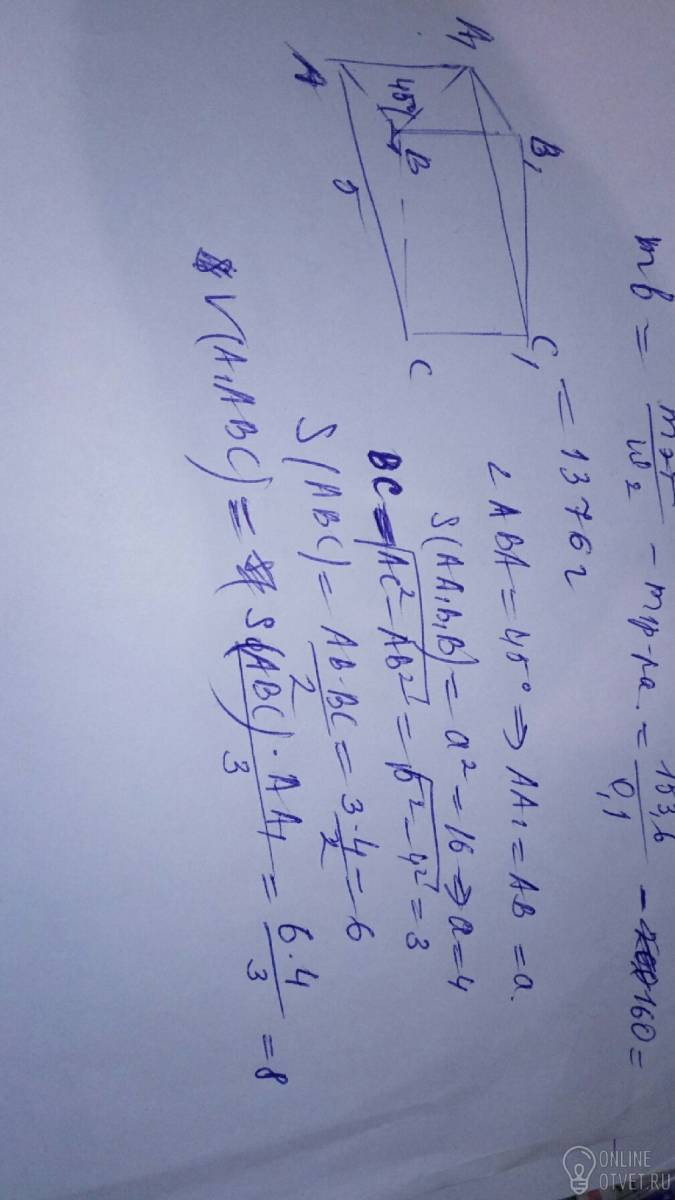 mв = mэт / w₂ − mр-ра = 153,6 / 0,1 − 160 =
= 1376 г
A₁
B₁
C₁
A
45°
B
5
C
∠ABA = 45° ⇒ AA₁ = AB = a
S(AA₁B₁B) = a² = 16 ⇒ a = 4
BC = √AC² − AB² = √5² − 4² = 3
S(ABC) = AB·BC / 2 = 3·4 / 2 = 6
V(A₁ABC) = S(ABC)·AA₁ / 3 = 6·4 / 3 = 8
ONLINE
OTVET.RU